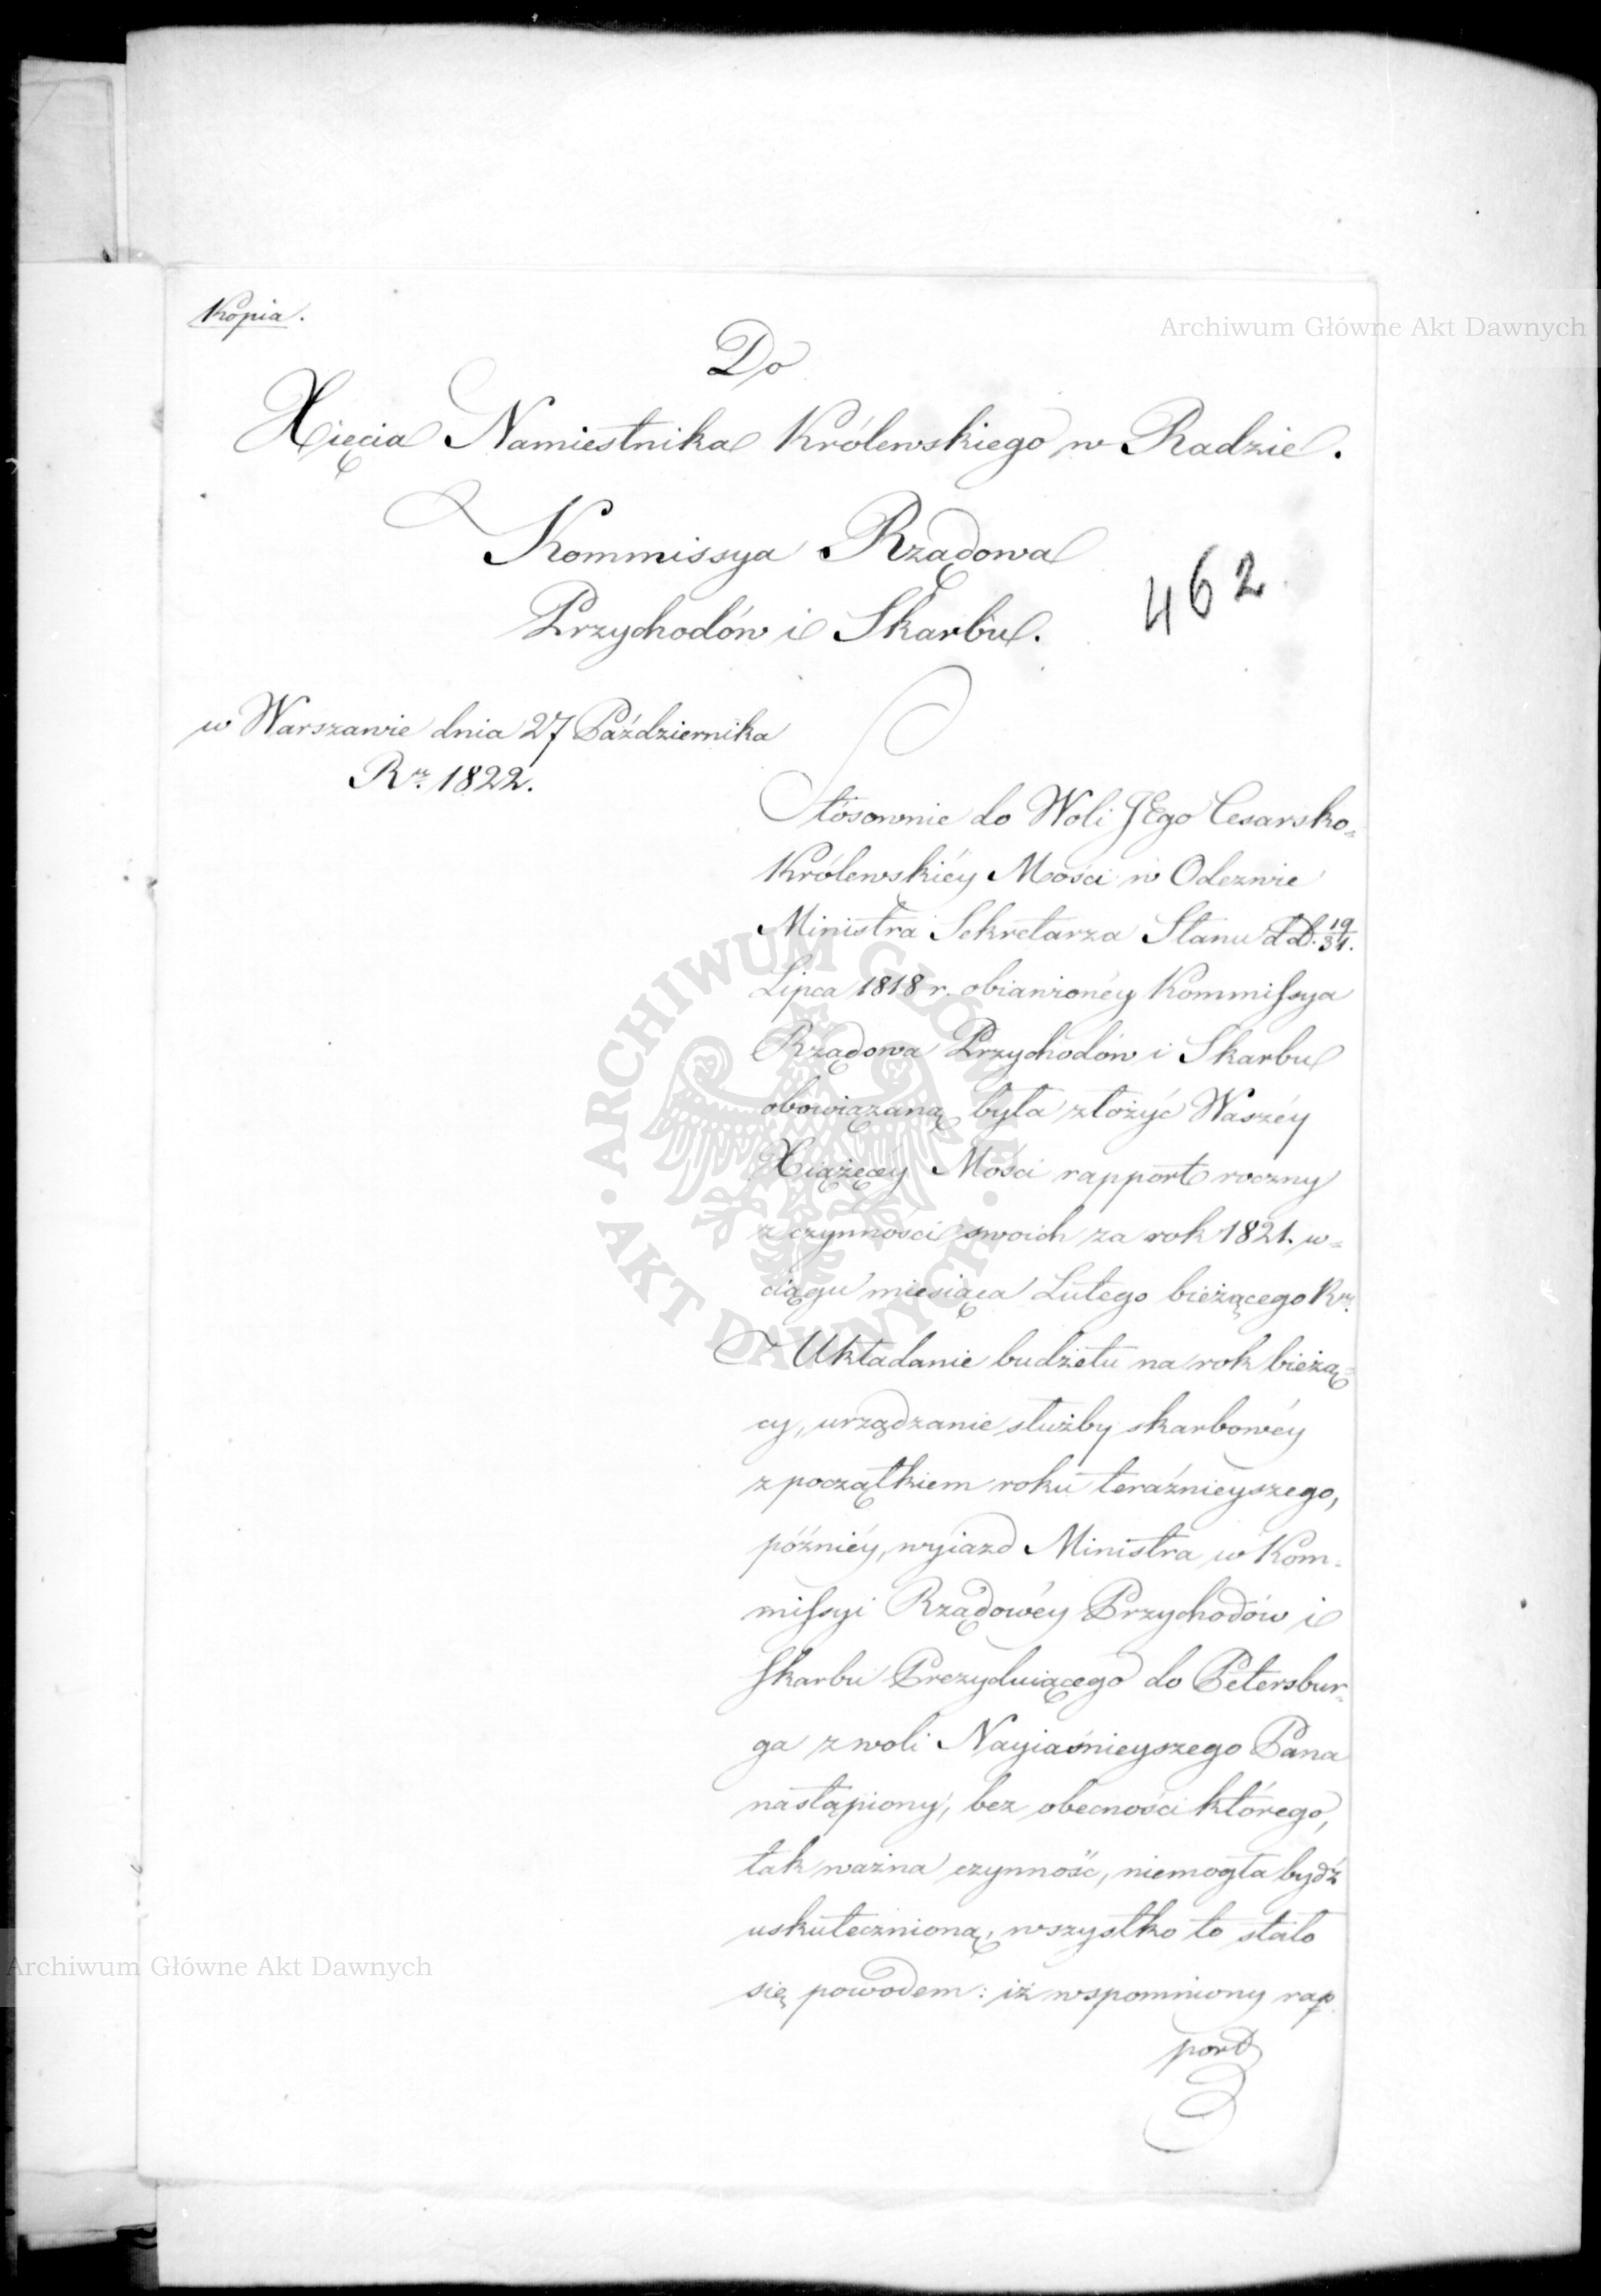 Kopia.
Archiwum Główne Akt Dawnych
Do
Xięcia Namiestnika Królewskiego w Radzie.
Kommissya Rządowa
462
Przychodów i Skarbu.
w Warszawie dnia 27 Października
Ru. 1822.
Stósownie do Woli JEgo Cesarsko-
Królewskiéy Mości w Odezwie
Ministra Sekretarza Stanu dd. 19/31.
Lipca 1818 r. obiawionéy Kommissya
Rządowa Przychodów i Skarbu
obowiązaną była złożyć Waszéy
Xiążęcéy Mości rapport roczny
z czynności swoich za rok 1821. w=
ciągu miesiąca Lutego bieżącego Ru.
Układanie budżetu na rok bieżą=
cy, urządzanie służby skarbowéy
z początkiem roku teraźnieyszego,
późniéy, wyiazd Ministra w Kom=
missyi Rządowéy Przychodów i
Skarbu Prezyduiącego do Petersbur=
ga z woli Nayiaśnieyszego Pana
nastąpiony, bez obecności którego,
tak ważna czynność, niemogła bydź
uskutecznioną, wszystko to stało
się powodem: iż wspomniony rap
port
Archiwum Główne Akt Dawnych
ARCHIWUM GŁÓWNE · AKT DAWNYCH ·